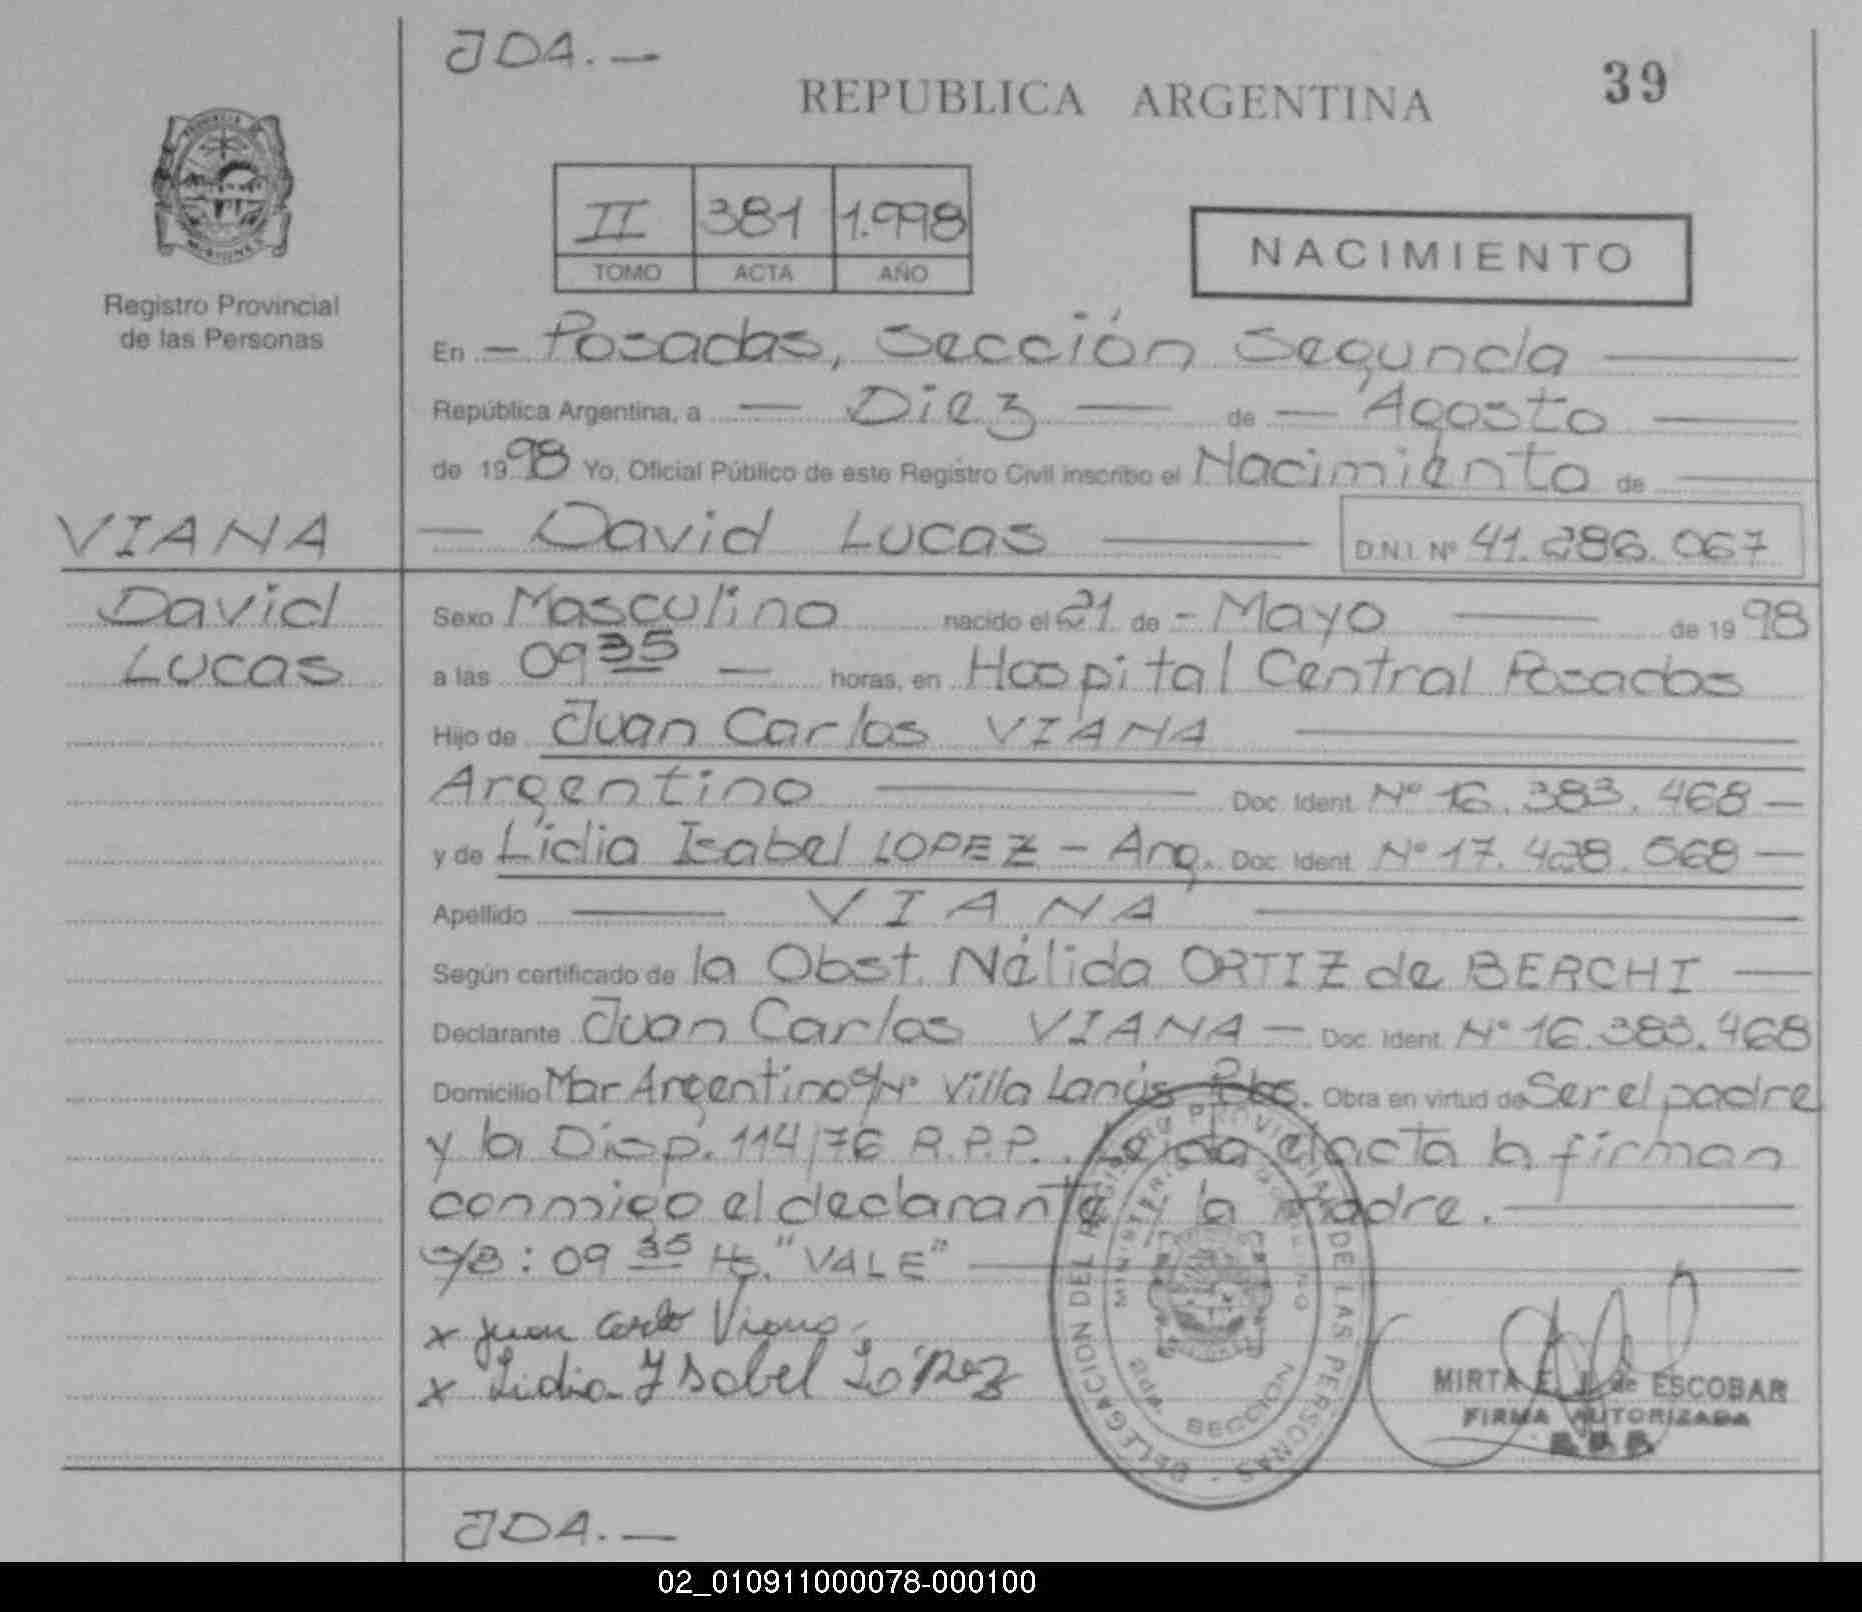 JDA.—
REPUBLICA ARGENTINA
39
II 381 1.998
TOMO ACTA AÑO
NACIMIENTO
Registro Provincial
de las Personas
En — Posadas, Sección Segunda —
República Argentina, a — Diez — de — Agosto —
de 1998 Yo, Oficial Público de este Registro Civil inscribo el Nacimiento de —
VIANA — David Lucas — D.N.I. Nº 41.286.067
David
Lucas
Sexo Masculino nacido el 21 de - Mayo — de 1998
a las 09 35 — horas, en Hospital Central Posadas
Hijo de Juan Carlos VIANA —
Argentino — Doc. Ident. Nº 16.383.468 —
y de Lidia Isabel LOPEZ - Arg. Doc. Ident. Nº 17.428.568 —
Apellido — VIANA —
Según certificado de la Obst. Nélida ORTIZ de BERCHI —
Declarante Juan Carlos VIANA — Doc. Ident. Nº 16.383.468
Domicilio Mar Argentino s/Nº Villa Lanús Pdas. Obra en virtud de Ser el padre
y la Disp. 114/76 R.P.P.. Leida el acta la firman
conmigo el declarante la madre. —
s/B: 09 35 Hs. "VALE" —
x Juan Carlos Viana.-
x Lidia Ysabel López
DELEGACION DEL REGISTRO PROVINCIAL DE LAS PERSONAS
MINISTERIO DE GOBIERNO
2DA. SECCION
MIRTA E. J. de ESCOBAR
FIRMA AUTORIZADA
JDA.—
02_010911000078-000100